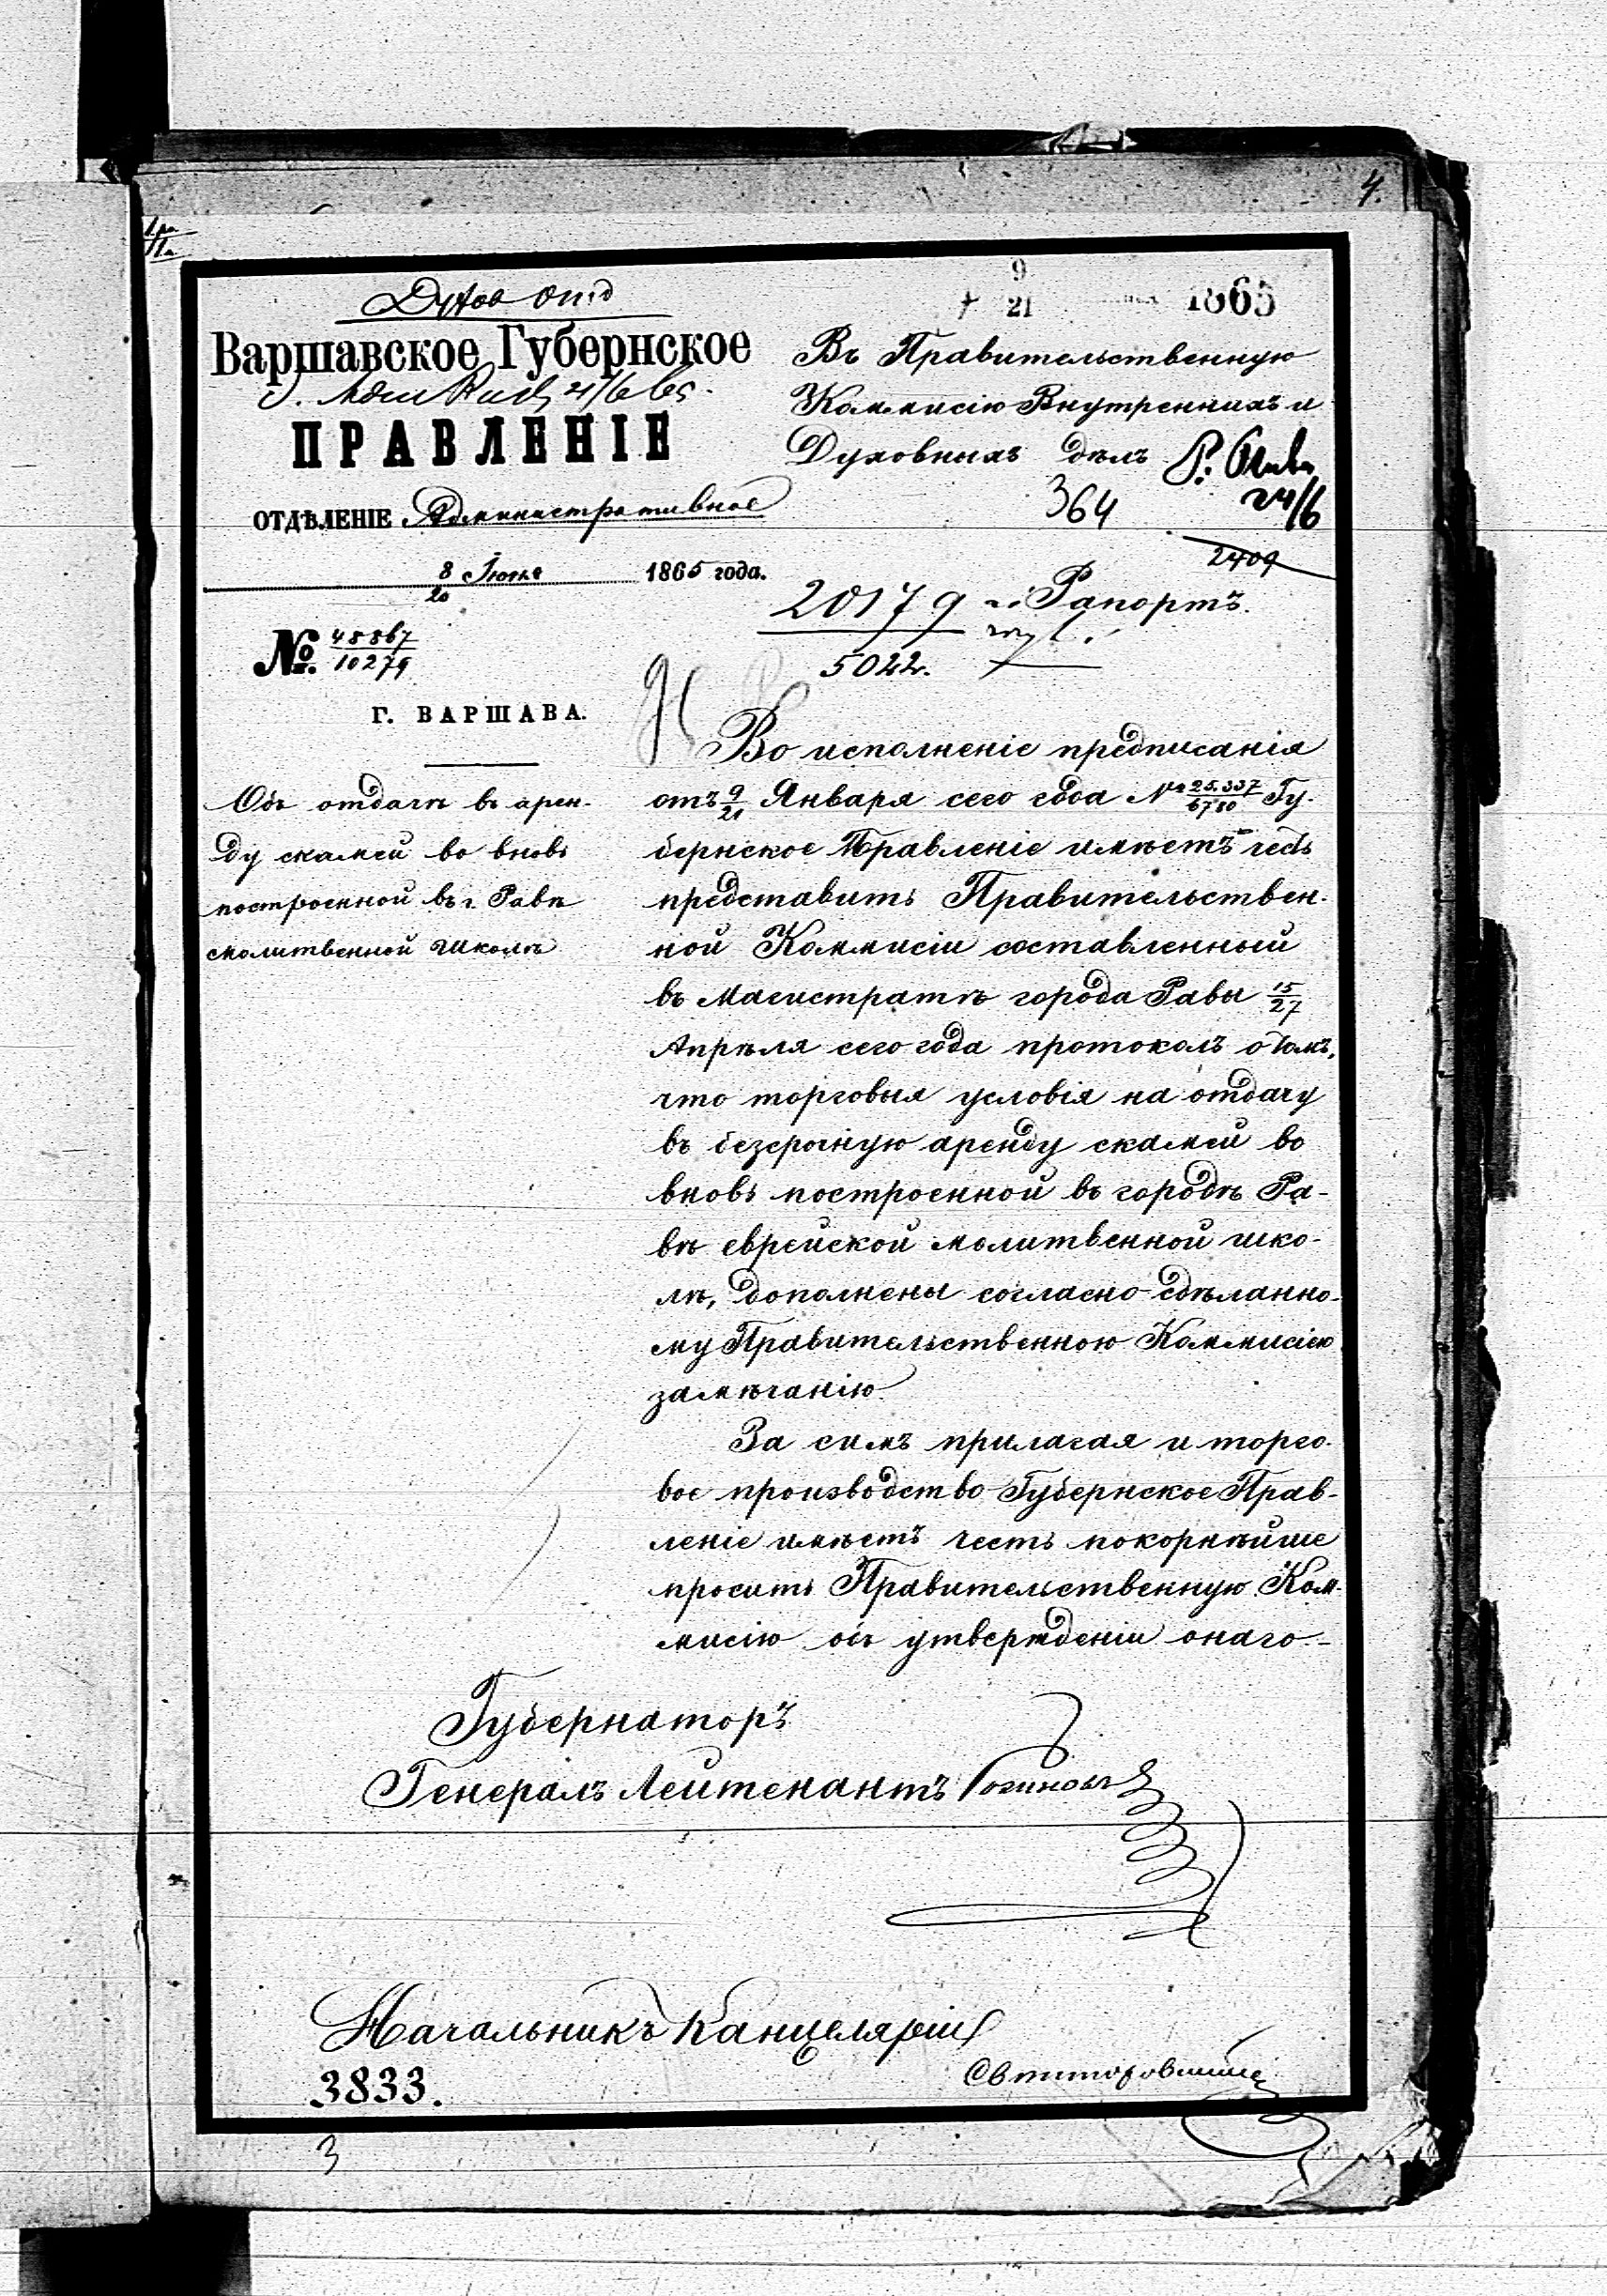 4.
Духов отд
Варшавское Губернское
ПРАВЛЕНІЕ
ОТДѢЛЕНІЕ Административное
8/20 Іюня 1865 года.
№ 48867/10279
Г. ВАРШАВА.
Объ отдачѣ въ арен-
ду скамей во вновь
построенной въ г. Равѣ
молитвенной школѣ
9/21 1865
Въ Правительственную
Коммисію Внутреннихъ и
Духовныхъ дѣлъ
24/6
364
2409
20179 Рапортъ.
5022.
Во исполненіе предписанія
отъ 9/21 Января сего года № 25.337/6780 Гу-
бернское Правленіе имѣетъ честь
представить Правительствен-
ной Коммисіи составленный
въ Магистратѣ города Равы 15/27
Апрѣля сего года протоколъ о томъ,
что торговыя условія на отдачу
въ безсрочную аренду скамей во
вновь построенной въ городѣ Ра-
вѣ еврейской молитвенной шко-
лѣ, дополнены согласно сдѣланно-
му Правительственною Коммисіею
замѣчанію.
За симъ прилагая и торго-
вое производство Губернское Прав-
леніе имѣетъ честь покорнѣйше
просить Правительственную Ком-
мисію объ утвержденіи онаго.-
Губернаторъ
Генералъ Лейтенантъ
Начальникъ Канцеляріи
3833.
3